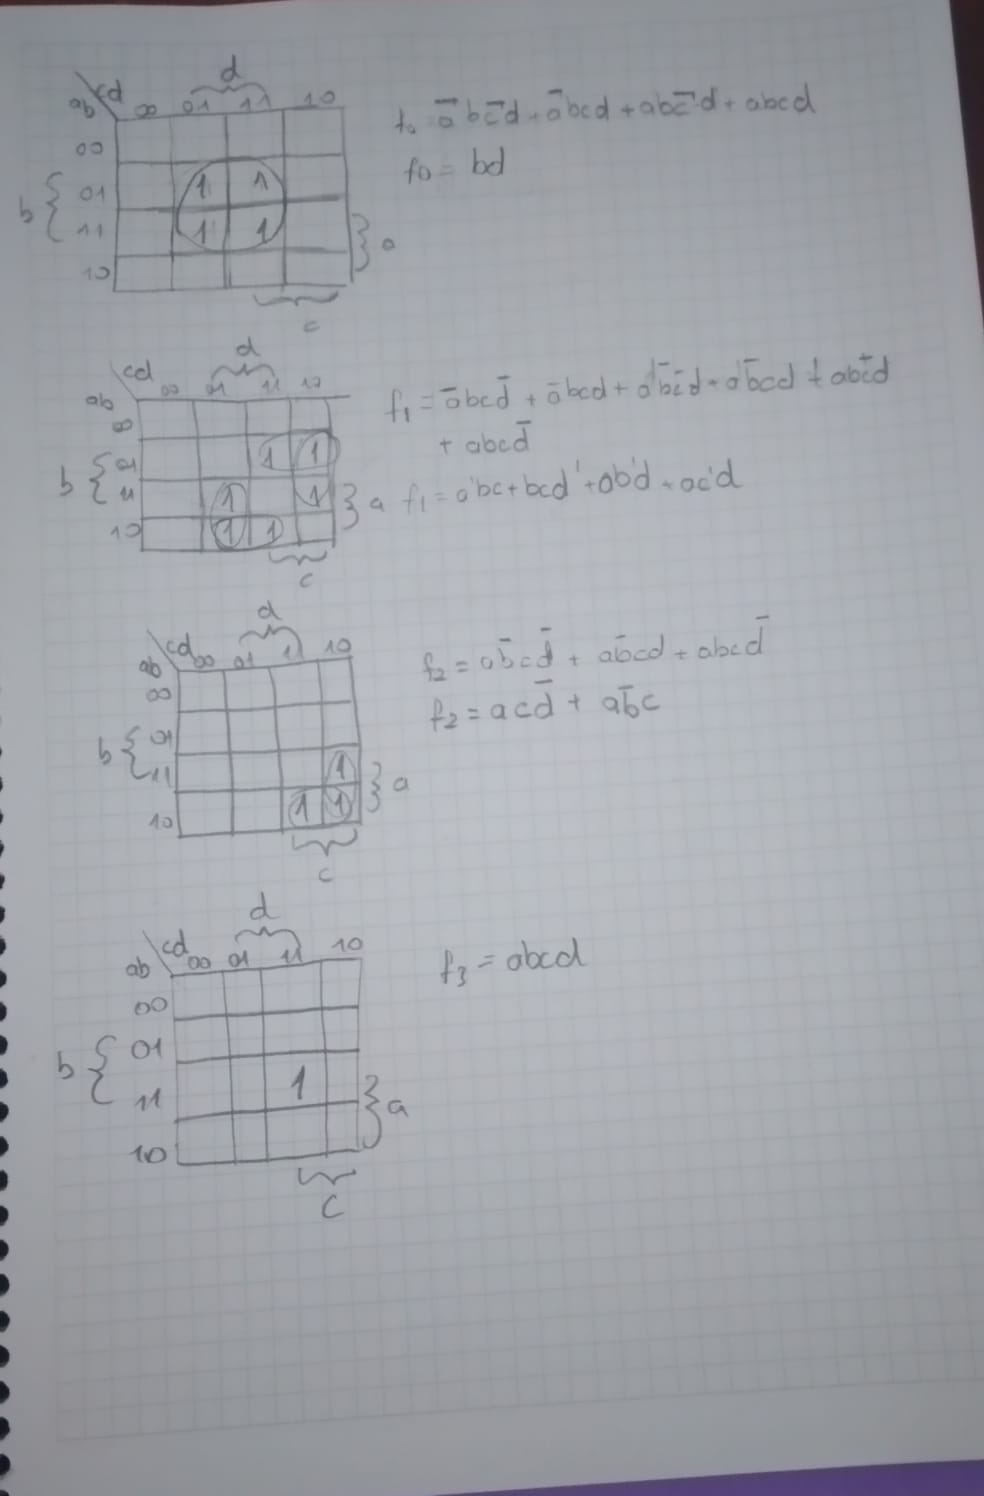 d
ab\cd 00 01 11 10
00
b { 01 1 1
11 1 1 } a
10
c
f₀ = a̅bc̅d + a̅bcd + abc̅d + abcd
f0 = bd
d
ab\cd 00 01 11 10
00
b { 01 1 1
11 1 1 } a
10 1 1
c
f₁ = a̅bcd̅ + a̅bcd + ab̅c̅d + ab̅cd + abc̅d
+ abcd̅
f₁ = a'bc + bcd' + ab'd + ac'd
d
ab\cd 00 01 11 10
00
b { 01
11 1 } a
10 1 1
c
f₂ = ab̅cd̅ + ab̅cd + abcd̅
f₂ = acd̅ + ab̅c
d
ab\cd 00 01 11 10
00
b { 01
11 1 } a
10
C
f₃ = abcd